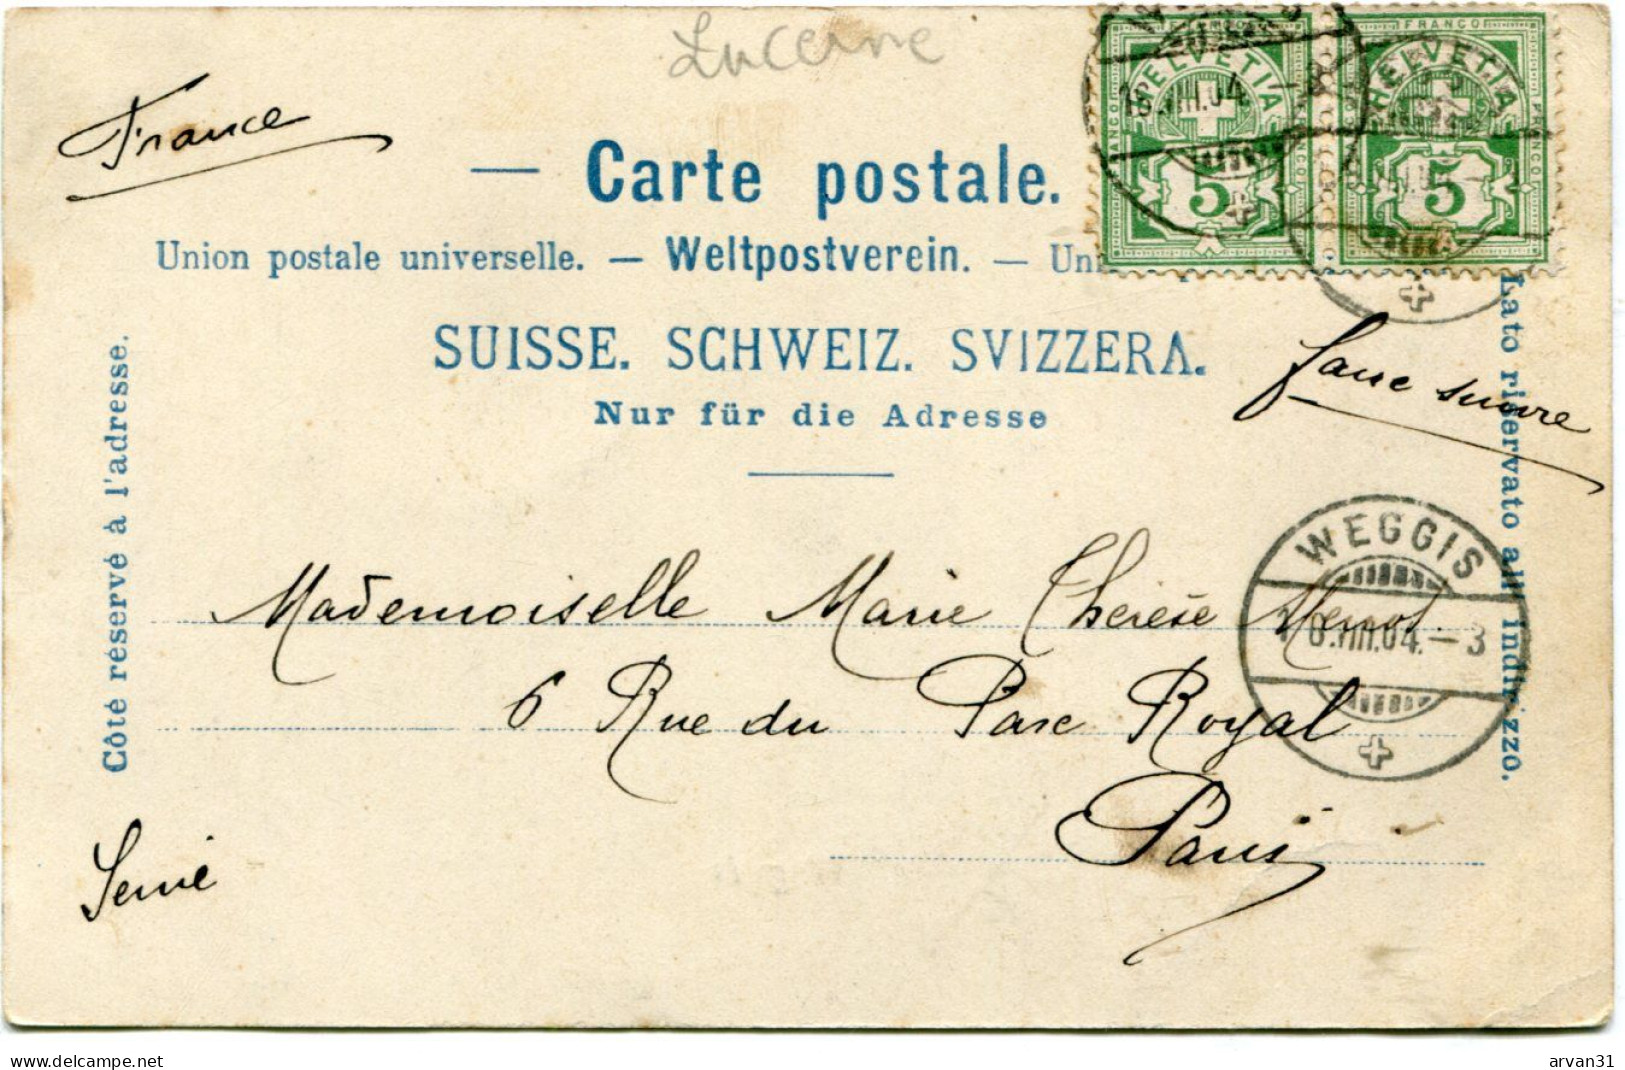 Lucerne
France
— Carte postale.
Union postale universelle. — Weltpostverein. — Un
SUISSE. SCHWEIZ. SVIZZERA.
Nur für die Adresse
Côté réservé à l'adresse.
Lato riservato all' Indirizzo.
HELVETIA
FRANCO
5
HELVETIA
FRANCO
5
faire suivre
WEGGIS
VIII.04.–3
Mademoiselle Marie Thérèse
6 Rue du Parc Royal
Paris
Seine
delcampe.net
arvan31